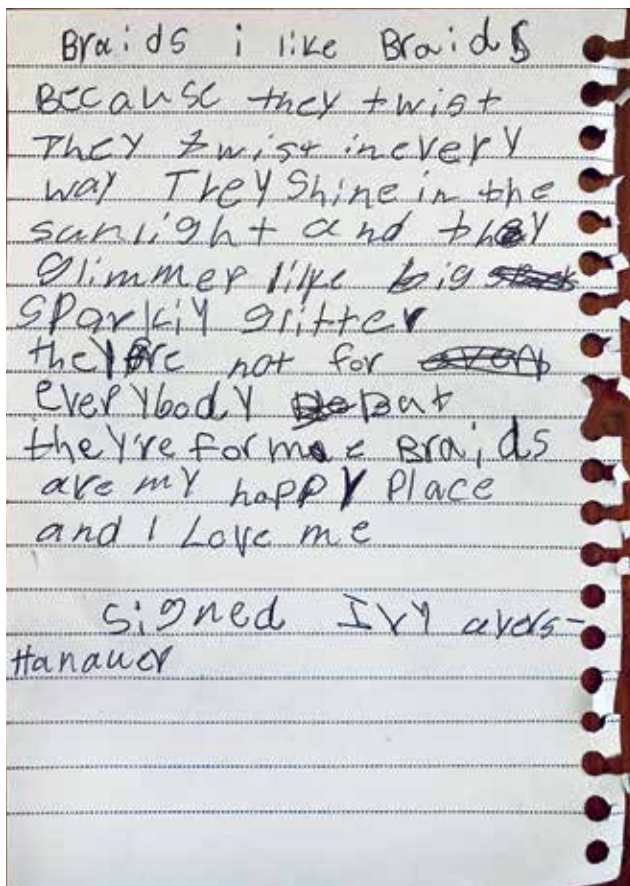 Braids i like Braids
Because they twist
They twist in every
way They Shine in the
sunlight and they
glimmer like big
sparkly glitter
they're not for
everybody but
they're for me Braids
are my happy Place
and I Love me
signed Ivy ayers-
Hanauer